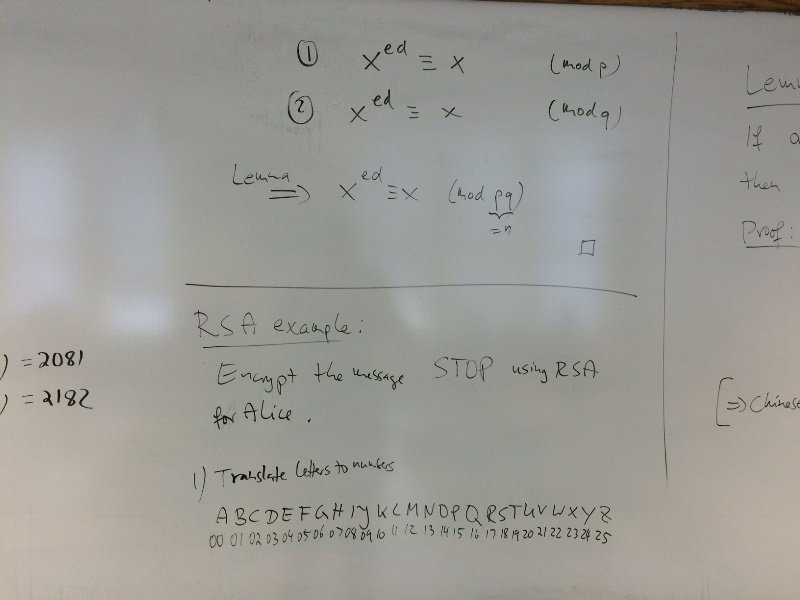 ① x^ed ≡ x (mod p)
② x^ed ≡ x (mod q)
Lemma ⟹ x^ed ≡ x (mod pq)
= n
□
RSA example:
Encrypt the message STOP using RSA
for Alice.
1) Translate letters to numbers
A B C D E F G H I J K L M N O P Q R S T U V W X Y Z
00 01 02 03 04 05 06 07 08 09 10 11 12 13 14 15 16 17 18 19 20 21 22 23 24 25
) = 2081
) = 2182
If
then
Proof:
[⇒ Chinese